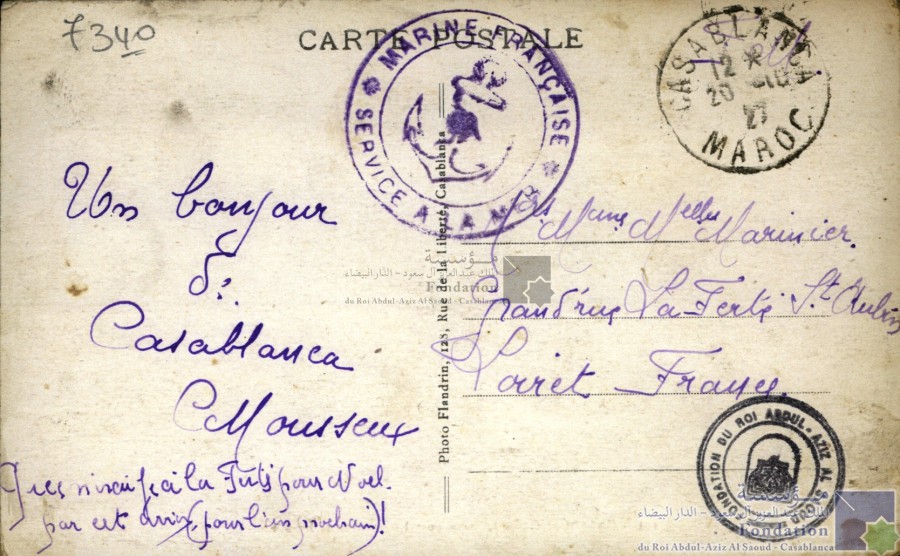 7340
CARTE POSTALE
MARINE FRANÇAISE
SERVICE A LA MER
CASABLANCA
12 *
20
MAROC
Un bonjour
de
Casablanca
Mousseux
pour Noel.
(pour l'an prochain)!
Photo Flandrin, 128, Rue de la liberté, Casablanca
Mme Melles Marinier.
Grand'rue La Ferté St Aubin
Loiret France.
مؤسسة
الملك عبد العزيز آل سعود - الدار البيضاء
Fondation
du Roi Abdul-Aziz Al Saoud - Casablanca
FONDATION DU ROI ABDUL-AZIZ AL SAOUD
مؤسسة
الملك عبد العزيز آل سعود - الدار البيضاء
Fondation
du Roi Abdul-Aziz Al Saoud - Casablanca